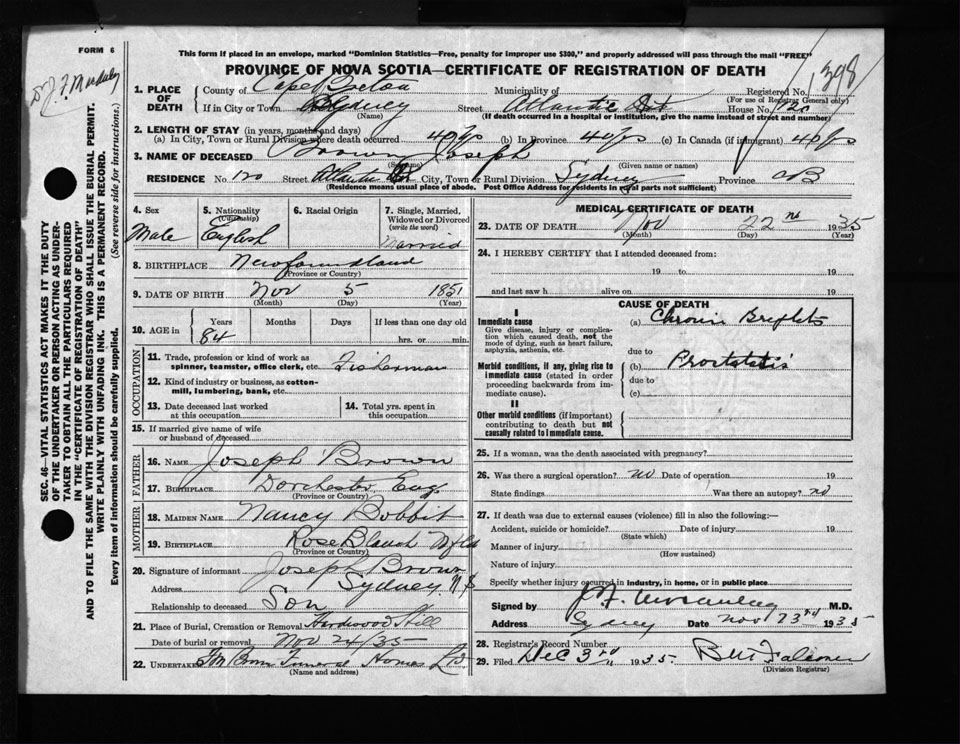 FORM 6
This form if placed in an envelope, marked "Dominion Statistics—Free, penalty for improper use $300," and properly addressed will pass through the mail "FREE"
PROVINCE OF NOVA SCOTIA—CERTIFICATE OF REGISTRATION OF DEATH
1398
1. PLACE OF DEATH
County of Cape Breton Municipality of Registered No.
(For use of Registrar General only)
If in City or Town Sydney Street Atlantic St House No. 120
(Name) (If death occurred in a hospital or institution, give the name instead of street and number)
2. LENGTH OF STAY (in years, months and days)
(a) In City, Town or Rural Division where death occurred 40 yrs (b) In Province 40 yrs (c) In Canada (if immigrant) 40 yrs
3. NAME OF DECEASED Brown Joseph
(Surname) (Given name or names)
RESIDENCE No. 120 Street Atlantic St City, Town or Rural Division Sydney Province CB
(Residence means usual place of abode. Post Office Address for residents in rural parts not sufficient)
4. Sex
Male
5. Nationality (Citizenship)
English
6. Racial Origin
7. Single, Married, Widowed or Divorced (write the word)
Married
8. BIRTHPLACE Newfoundland
(Province or Country)
9. DATE OF BIRTH Nov 5 1851
(Month) (Day) (Year)
10. AGE in Years Months Days If less than one day old
84 hrs. or min.
OCCUPATION
11. Trade, profession or kind of work as spinner, teamster, office clerk, etc. Fisherman
12. Kind of industry or business, as cotton-mill, lumbering, bank, etc.
13. Date deceased last worked at this occupation
14. Total yrs. spent in this occupation
15. If married give name of wife or husband of deceased
FATHER
16. NAME Joseph Brown
17. BIRTHPLACE Dorchester Eng
(Province or Country)
MOTHER
18. MAIDEN NAME Nancy Bobbit
19. BIRTHPLACE Rose Blanch Nfld
(Province or Country)
20. Signature of informant Joseph Brown
Address Sydney N.S
Relationship to deceased Son
21. Place of Burial, Cremation or Removal Hardwood Hill
Date of burial or removal Nov 24/35
22. UNDERTAKER Funeral Home Ltd
(Name and address)
MEDICAL CERTIFICATE OF DEATH
23. DATE OF DEATH Nov 22nd 1935
(Month) (Day) (Year)
24. I HEREBY CERTIFY that I attended deceased from:
19 to 19
and last saw h alive on 19
CAUSE OF DEATH
I
Immediate cause
Give disease, injury or complication which caused death, not the mode of dying, such as heart failure, asphyxia, asthenia, etc.
(a) Chronic Brights
due to
Morbid conditions, if any, giving rise to immediate cause (stated in order proceeding backwards from immediate cause).
(b) Prostatitis
due to
(c)
II
Other morbid conditions (if important) contributing to death but not causally related to immediate cause.
25. If a woman, was the death associated with pregnancy?
26. Was there a surgical operation? no Date of operation 19
State findings Was there an autopsy? no
27. If death was due to external causes (violence) fill in also the following:—
Accident, suicide or homicide? Date of injury 19
(State which)
Manner of injury
(How sustained)
Nature of injury
Specify whether injury occurred in industry, in home, or in public place
Signed by M.D.
Address Sydney Date Nov 23rd 1935
28. Registrar's Record Number
29. Filed Dec 3rd 1935
(Division Registrar)
SEC. 46—VITAL STATISTICS ACT MAKES IT THE DUTY
OF THE UNDERTAKER OR PERSON ACTING AS UNDERTAKER TO OBTAIN ALL THE PARTICULARS REQUIRED
IN THE "CERTIFICATE OF REGISTRATION OF DEATH"
AND TO FILE THE SAME WITH THE DIVISION REGISTRAR WHO SHALL ISSUE THE BURIAL PERMIT.
WRITE PLAINLY WITH UNFADING INK. THIS IS A PERMANENT RECORD.
Every item of information should be carefully supplied. (See reverse side for instructions.)